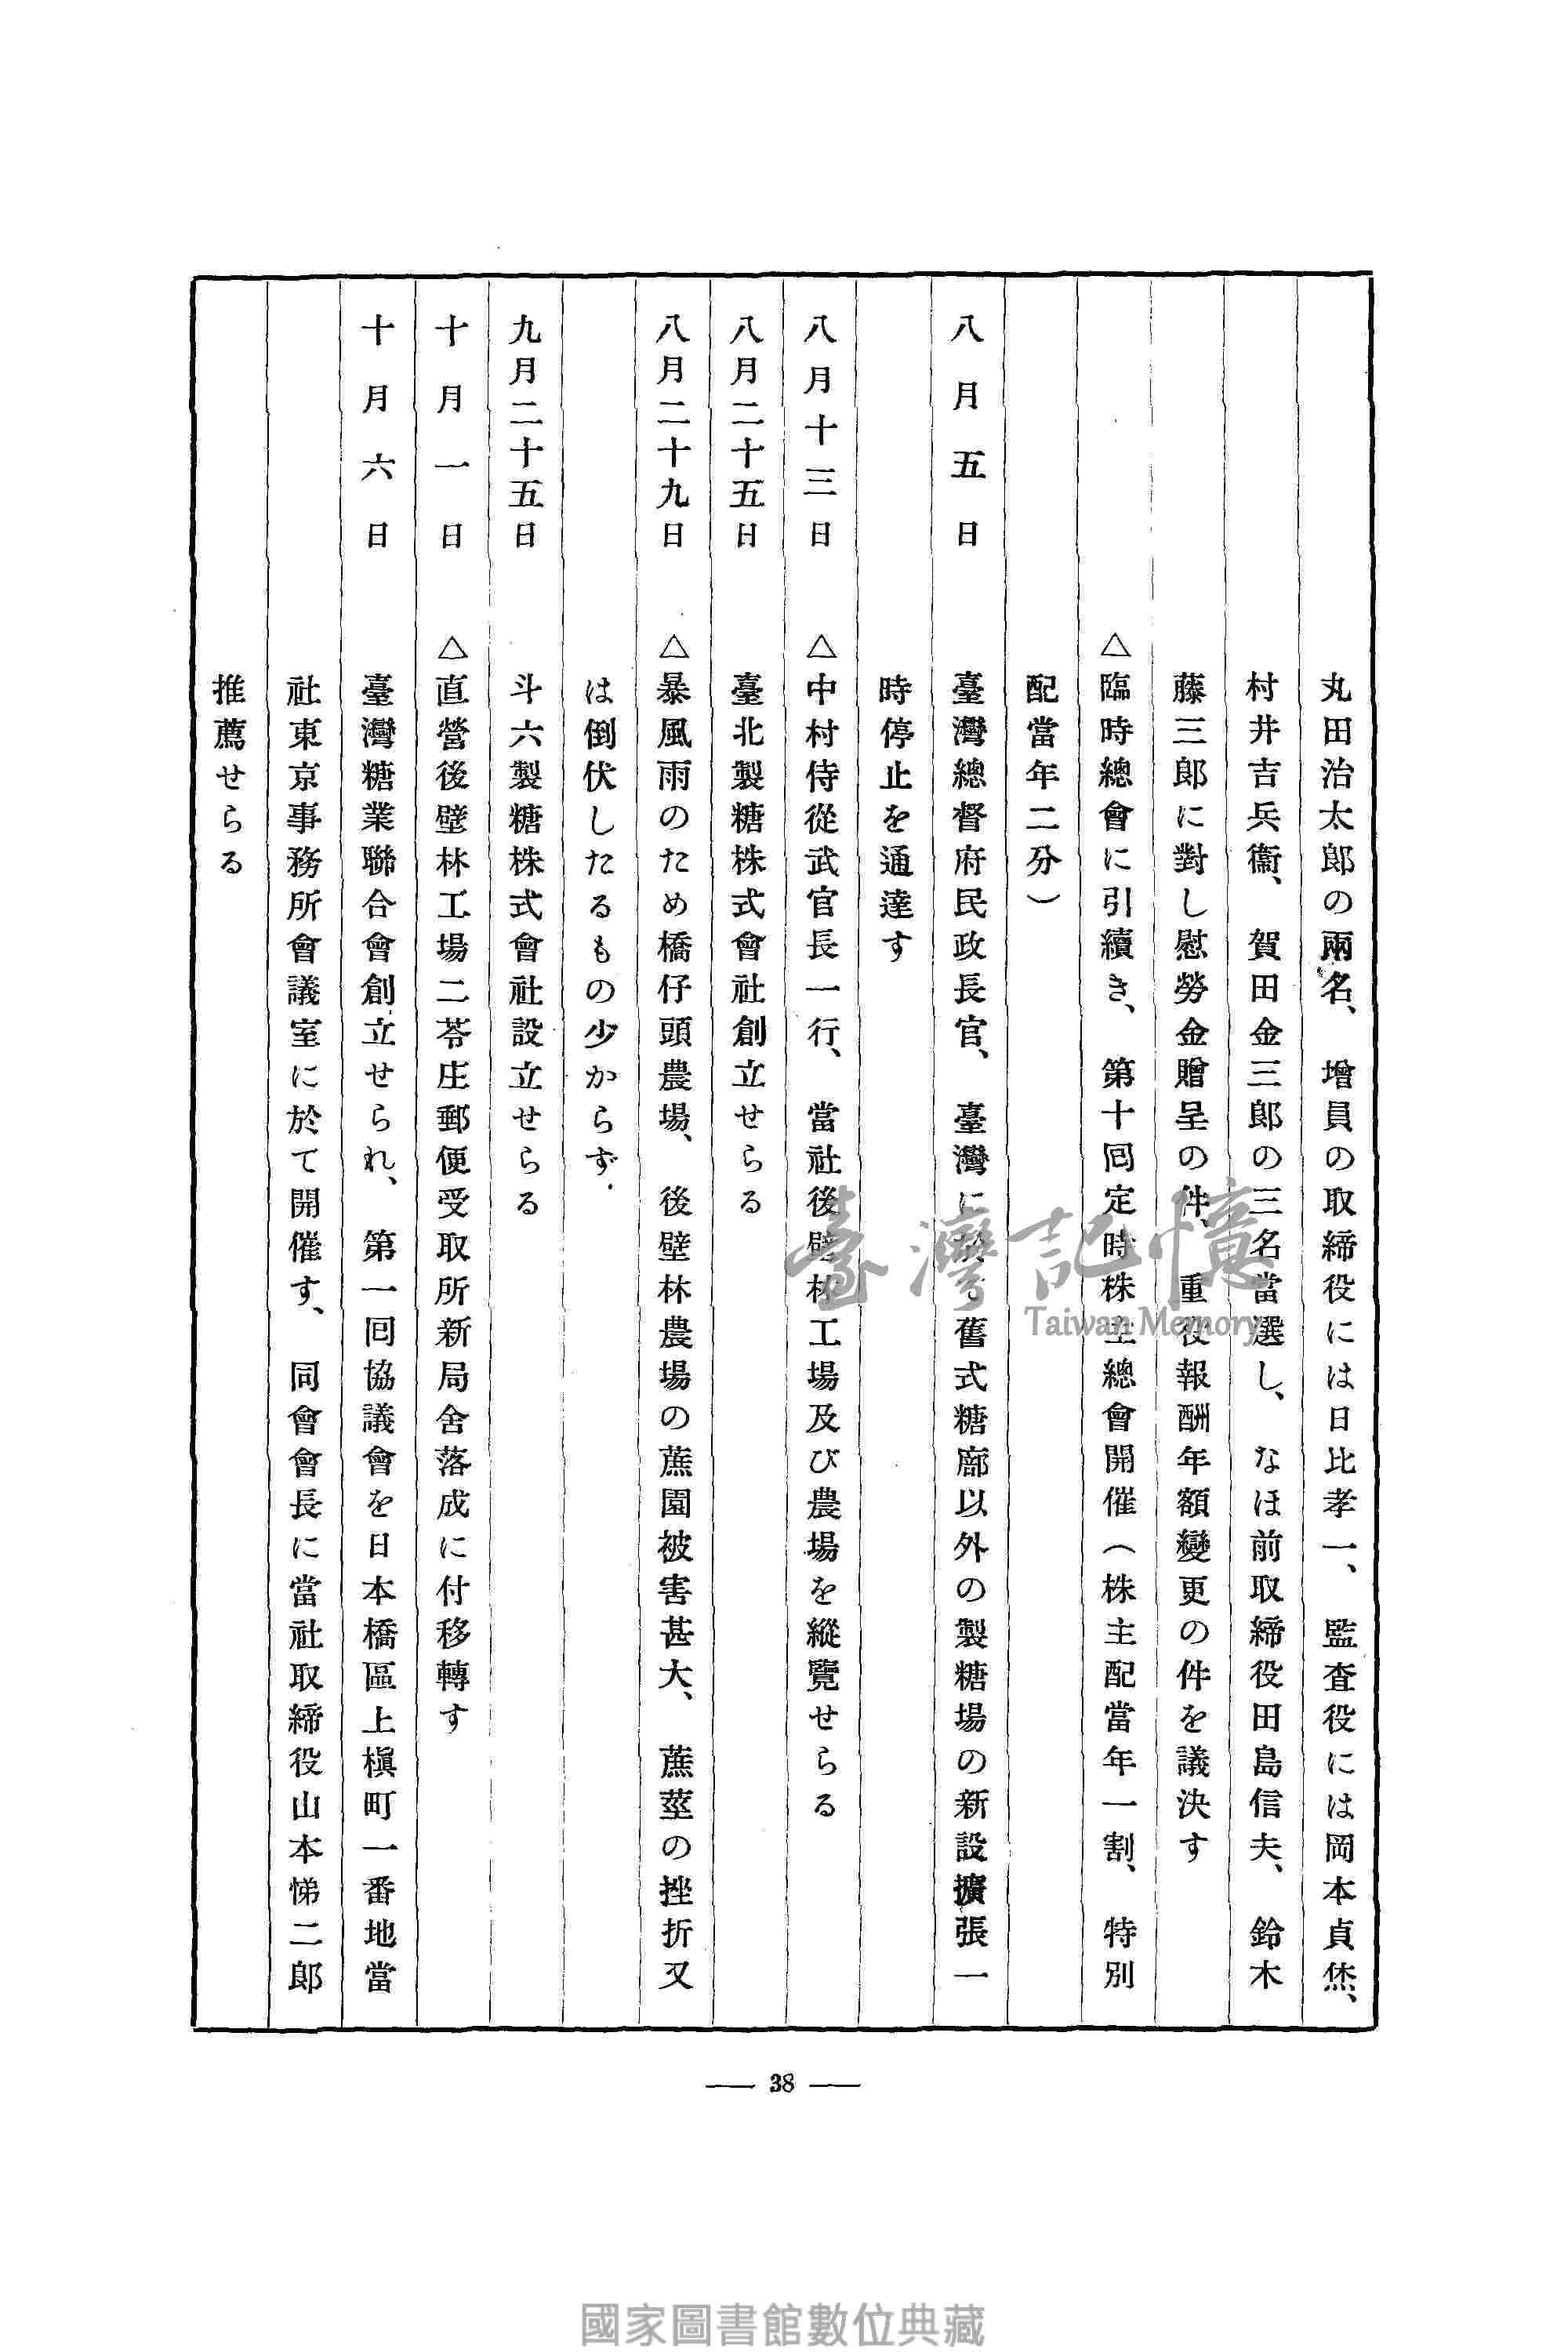 丸田治太郎の兩名、增員の取締役には日比孝一、監査役には岡本貞烋、
村井吉兵衞、賀田金三郎の三名當選し、なほ前取締役田島信夫、鈴木
藤三郎に對し慰勞金贈呈の件、重役報酬年額變更の件を議決す
△臨時總會に引續き、第十回定時株主總會開催（株主配當年一割、特別
配當年二分）
八月五日 臺灣總督府民政長官、臺灣に於る舊式糖廍以外の製糖場の新設擴張一
時停止を通達す
八月十三日 △中村侍從武官長一行、當社後壁林工場及び農場を縱覽せらる
八月二十五日 臺北製糖株式會社創立せらる
八月二十九日 △暴風雨のため橋仔頭農場、後壁林農場の蔗園被害甚大、蔗莖の挫折又
は倒伏したるもの少からず
九月二十五日 斗六製糖株式會社設立せらる
十月一日 △直營後壁林工場二苓庄郵便受取所新局舍落成に付移轉す
十月六日 臺灣糖業聯合會創立せられ、第一回協議會を日本橋區上槇町一番地當
社東京事務所會議室に於て開催す、同會會長に當社取締役山本悌二郎
推薦せらる
38
臺灣記憶
Taiwan Memory
國家圖書館數位典藏